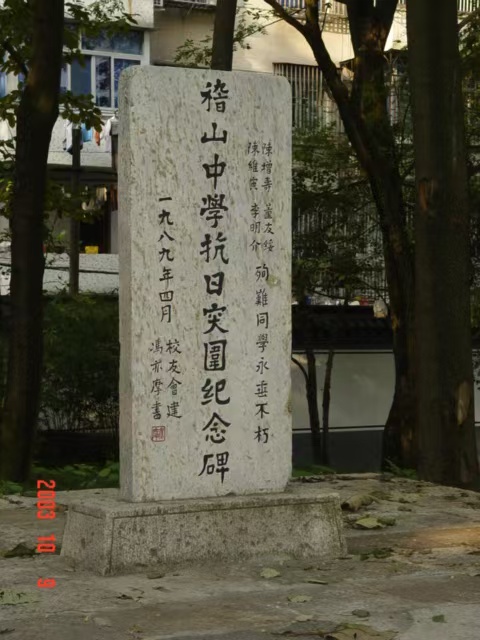 陳增寿 友綏
陳維寅 李明介
殉難同學永垂不朽
稽山中學抗日突圍纪念碑
一九八九年四月
校友會建
馮亦摩書
2003 10